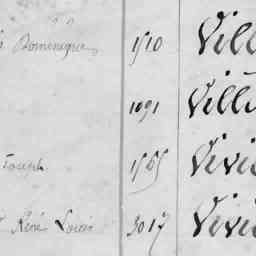 Dominique 1510 Vill
1091 Vill
Joseph 1565 Vivi
René Louis 3017 Vivi